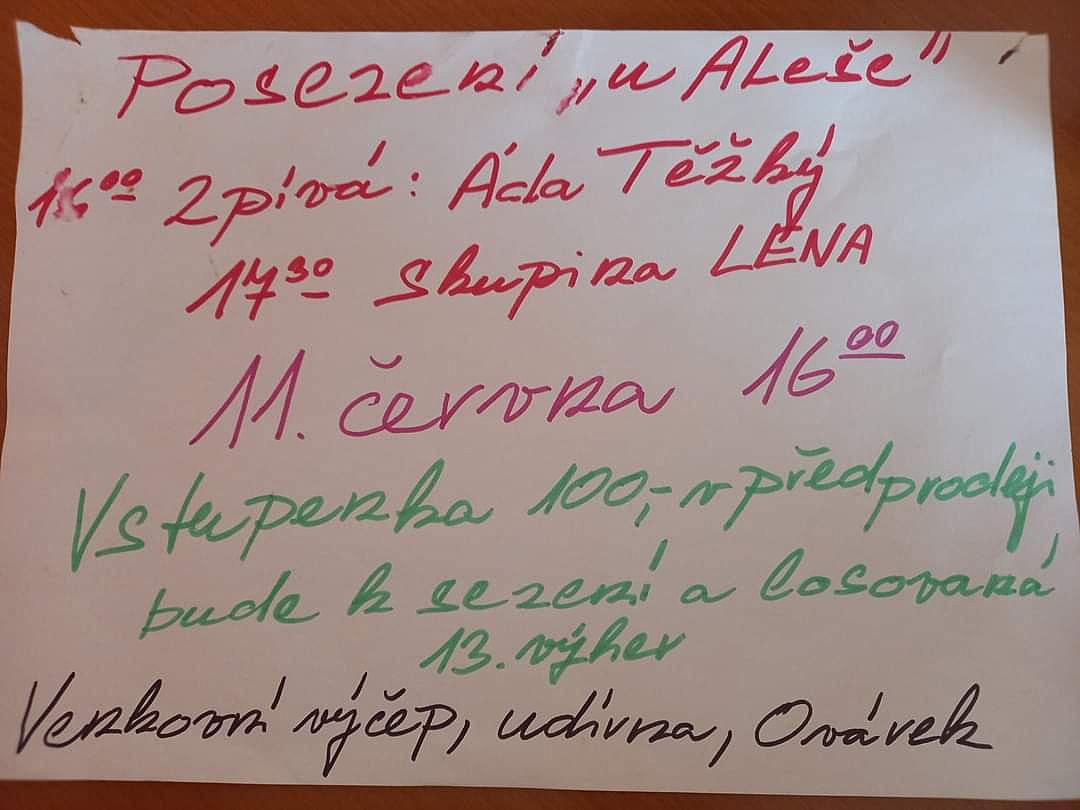 Posezení „u Aleše"
16⁰⁰ Zpívá: Áda Těžký
17³⁰ Skupina LENA
11. června 16⁰⁰
Vstupenka 100,- v předprodeji,
bude k sezení a losovaná
13. výher
Venkovní výčep, udírna, Ovárek